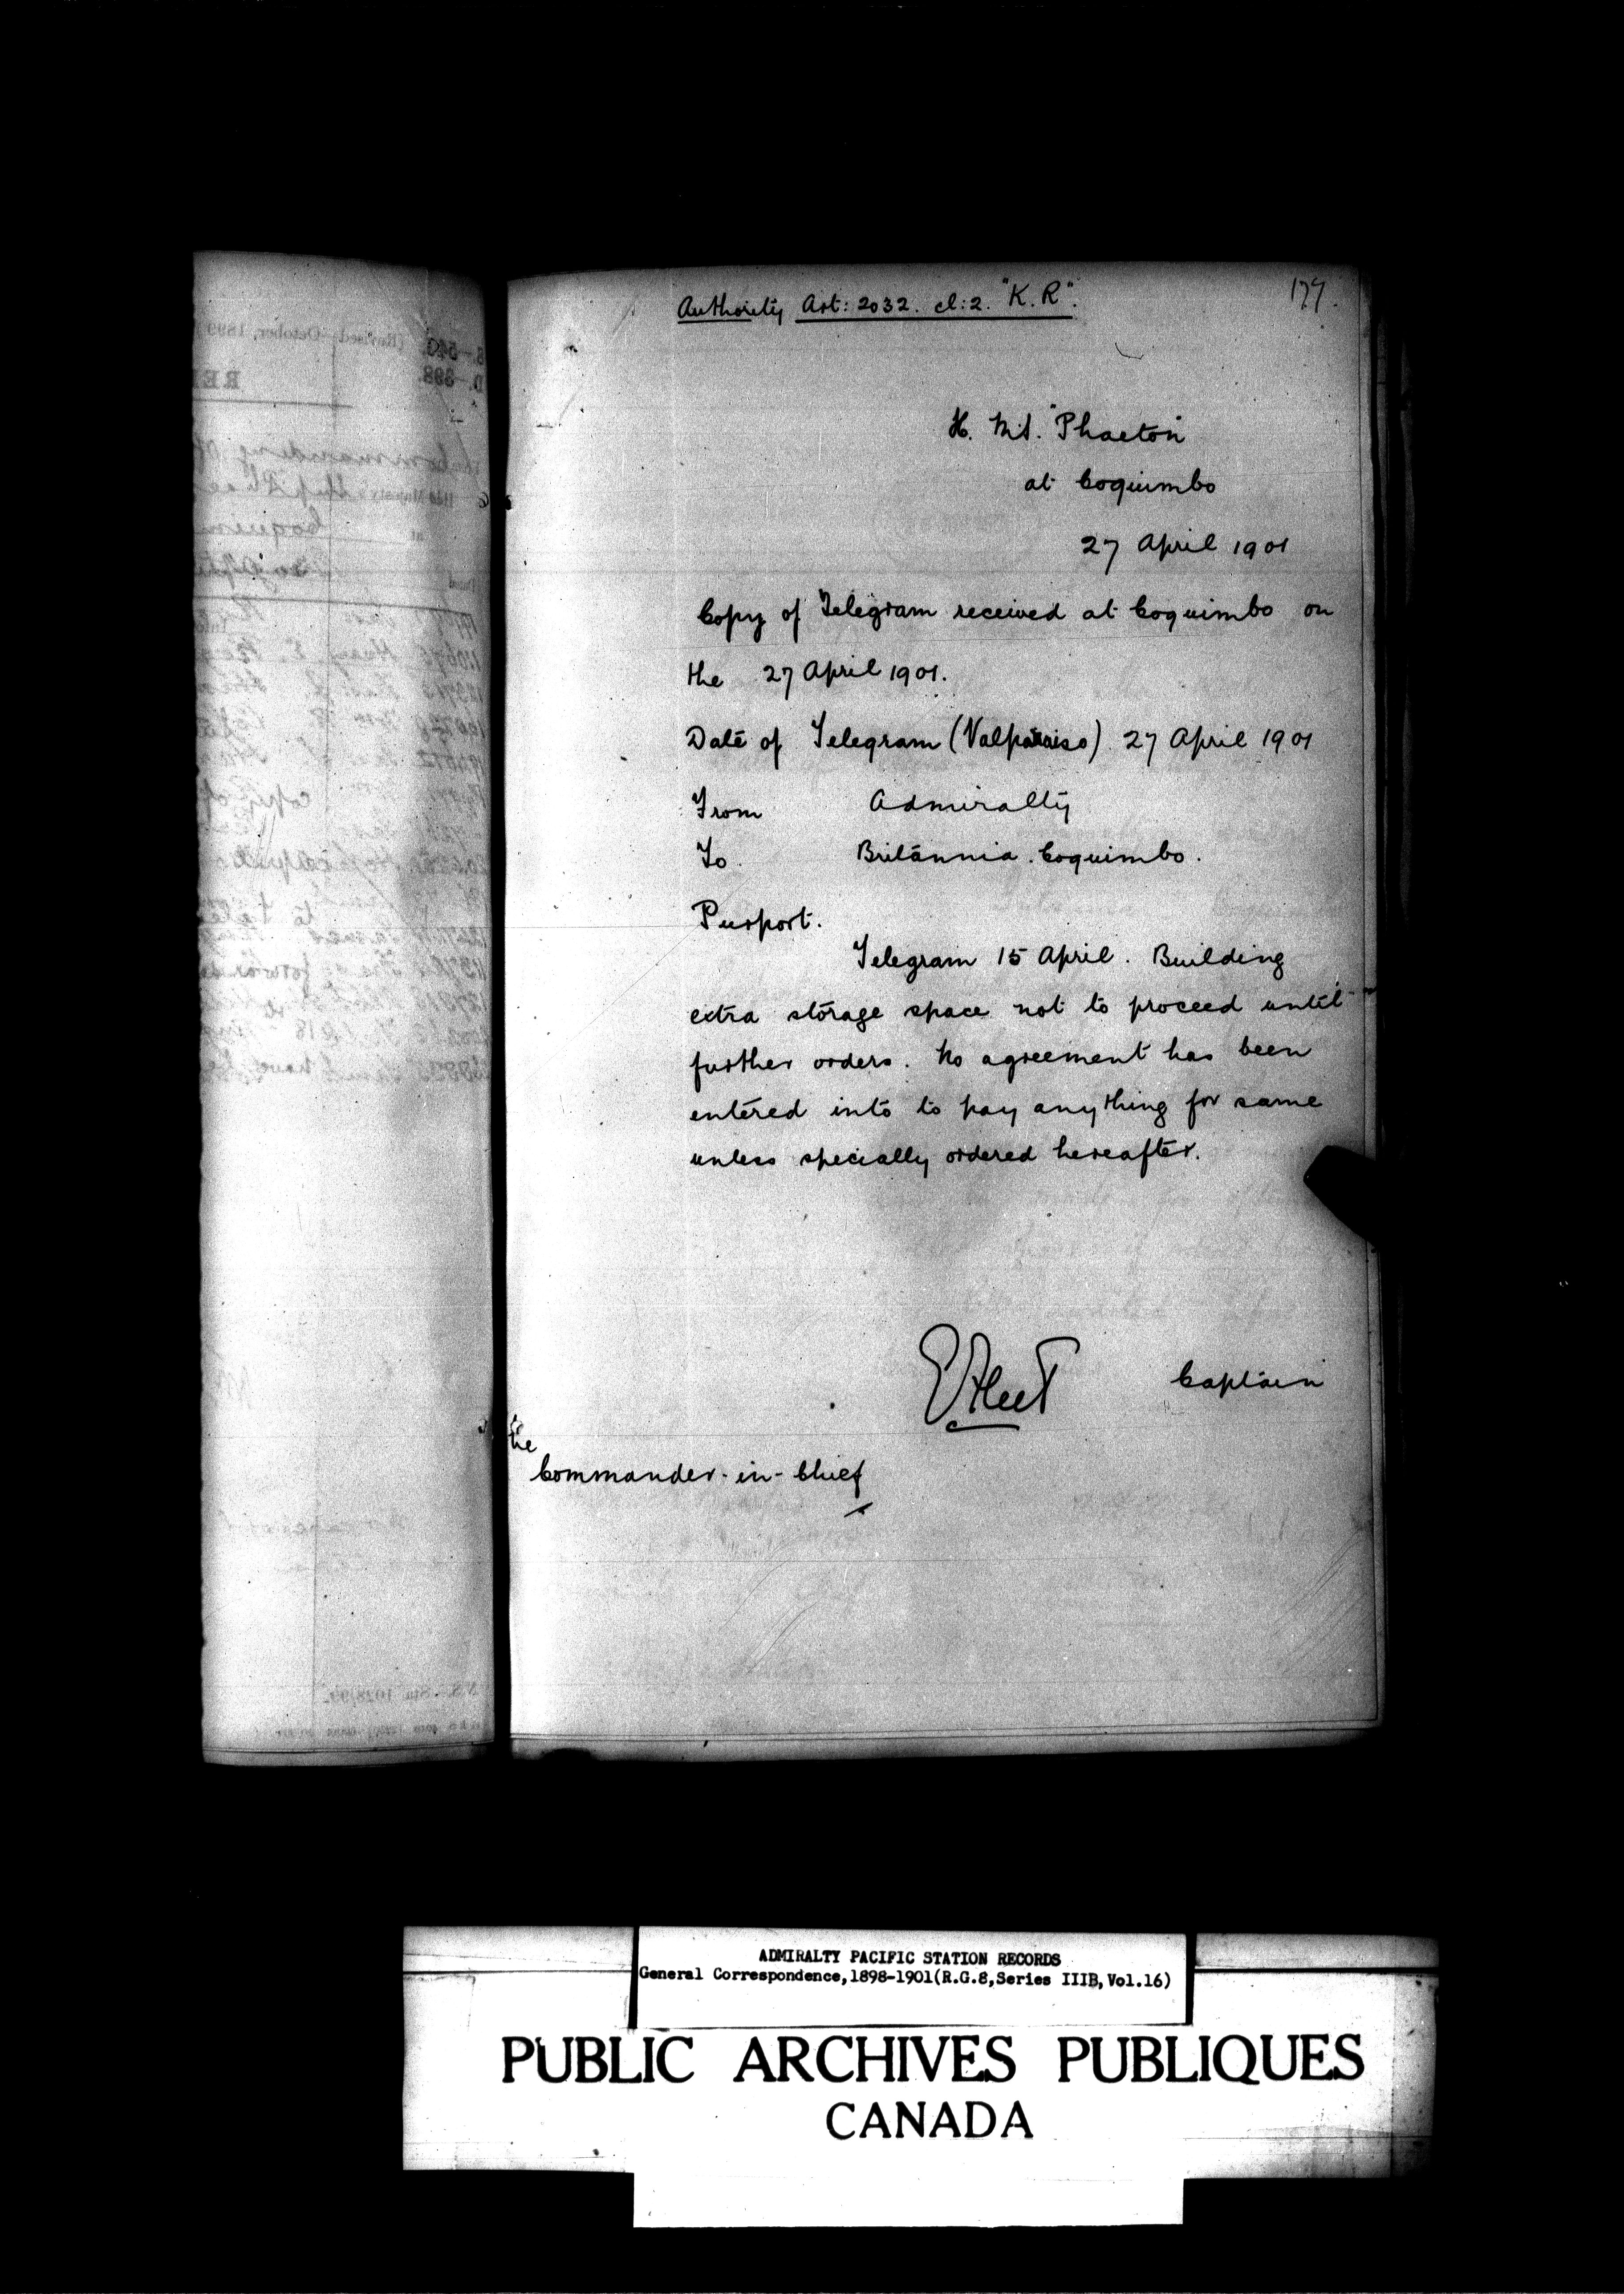 Authority Art: 2032. cl: 2. "K. R".
177.
H. M. S. "Phaeton"
at Coquimbo
27 April 1901
Copy of Telegram received at Coquimbo on
the 27 April 1901.
Date of Telegram (Valparaiso) 27 April 1901
From Admiralty
To Britannia. Coquimbo.
Purport.
Telegram 15 April. Building
extra storage space not to proceed until
further orders. No agreement has been
entered into to pay anything for same
unless specially ordered hereafter.
Captain
The
Commander-in-Chief
ADMIRALTY PACIFIC STATION RECORDS
General Correspondence, 1898-1901 (R.G.8, Series IIIB, Vol.16)
PUBLIC ARCHIVES PUBLIQUES
CANADA